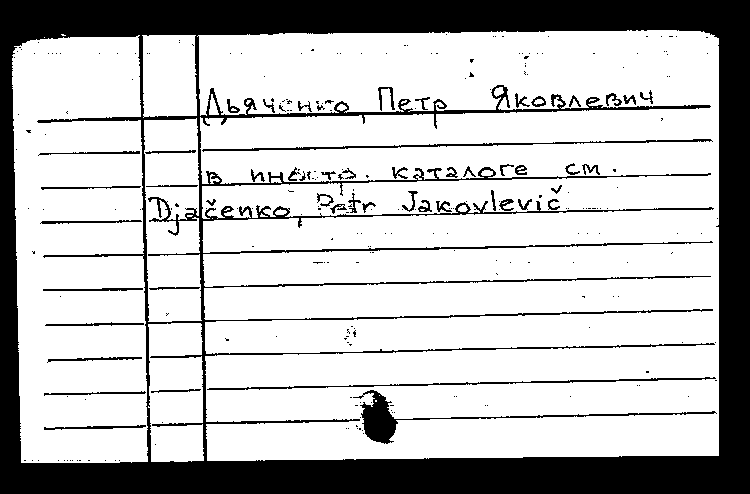 Дьяченко, Петр Яковлевич
в иностр. каталоге см.
Djačenko, Petr Jakovlevič